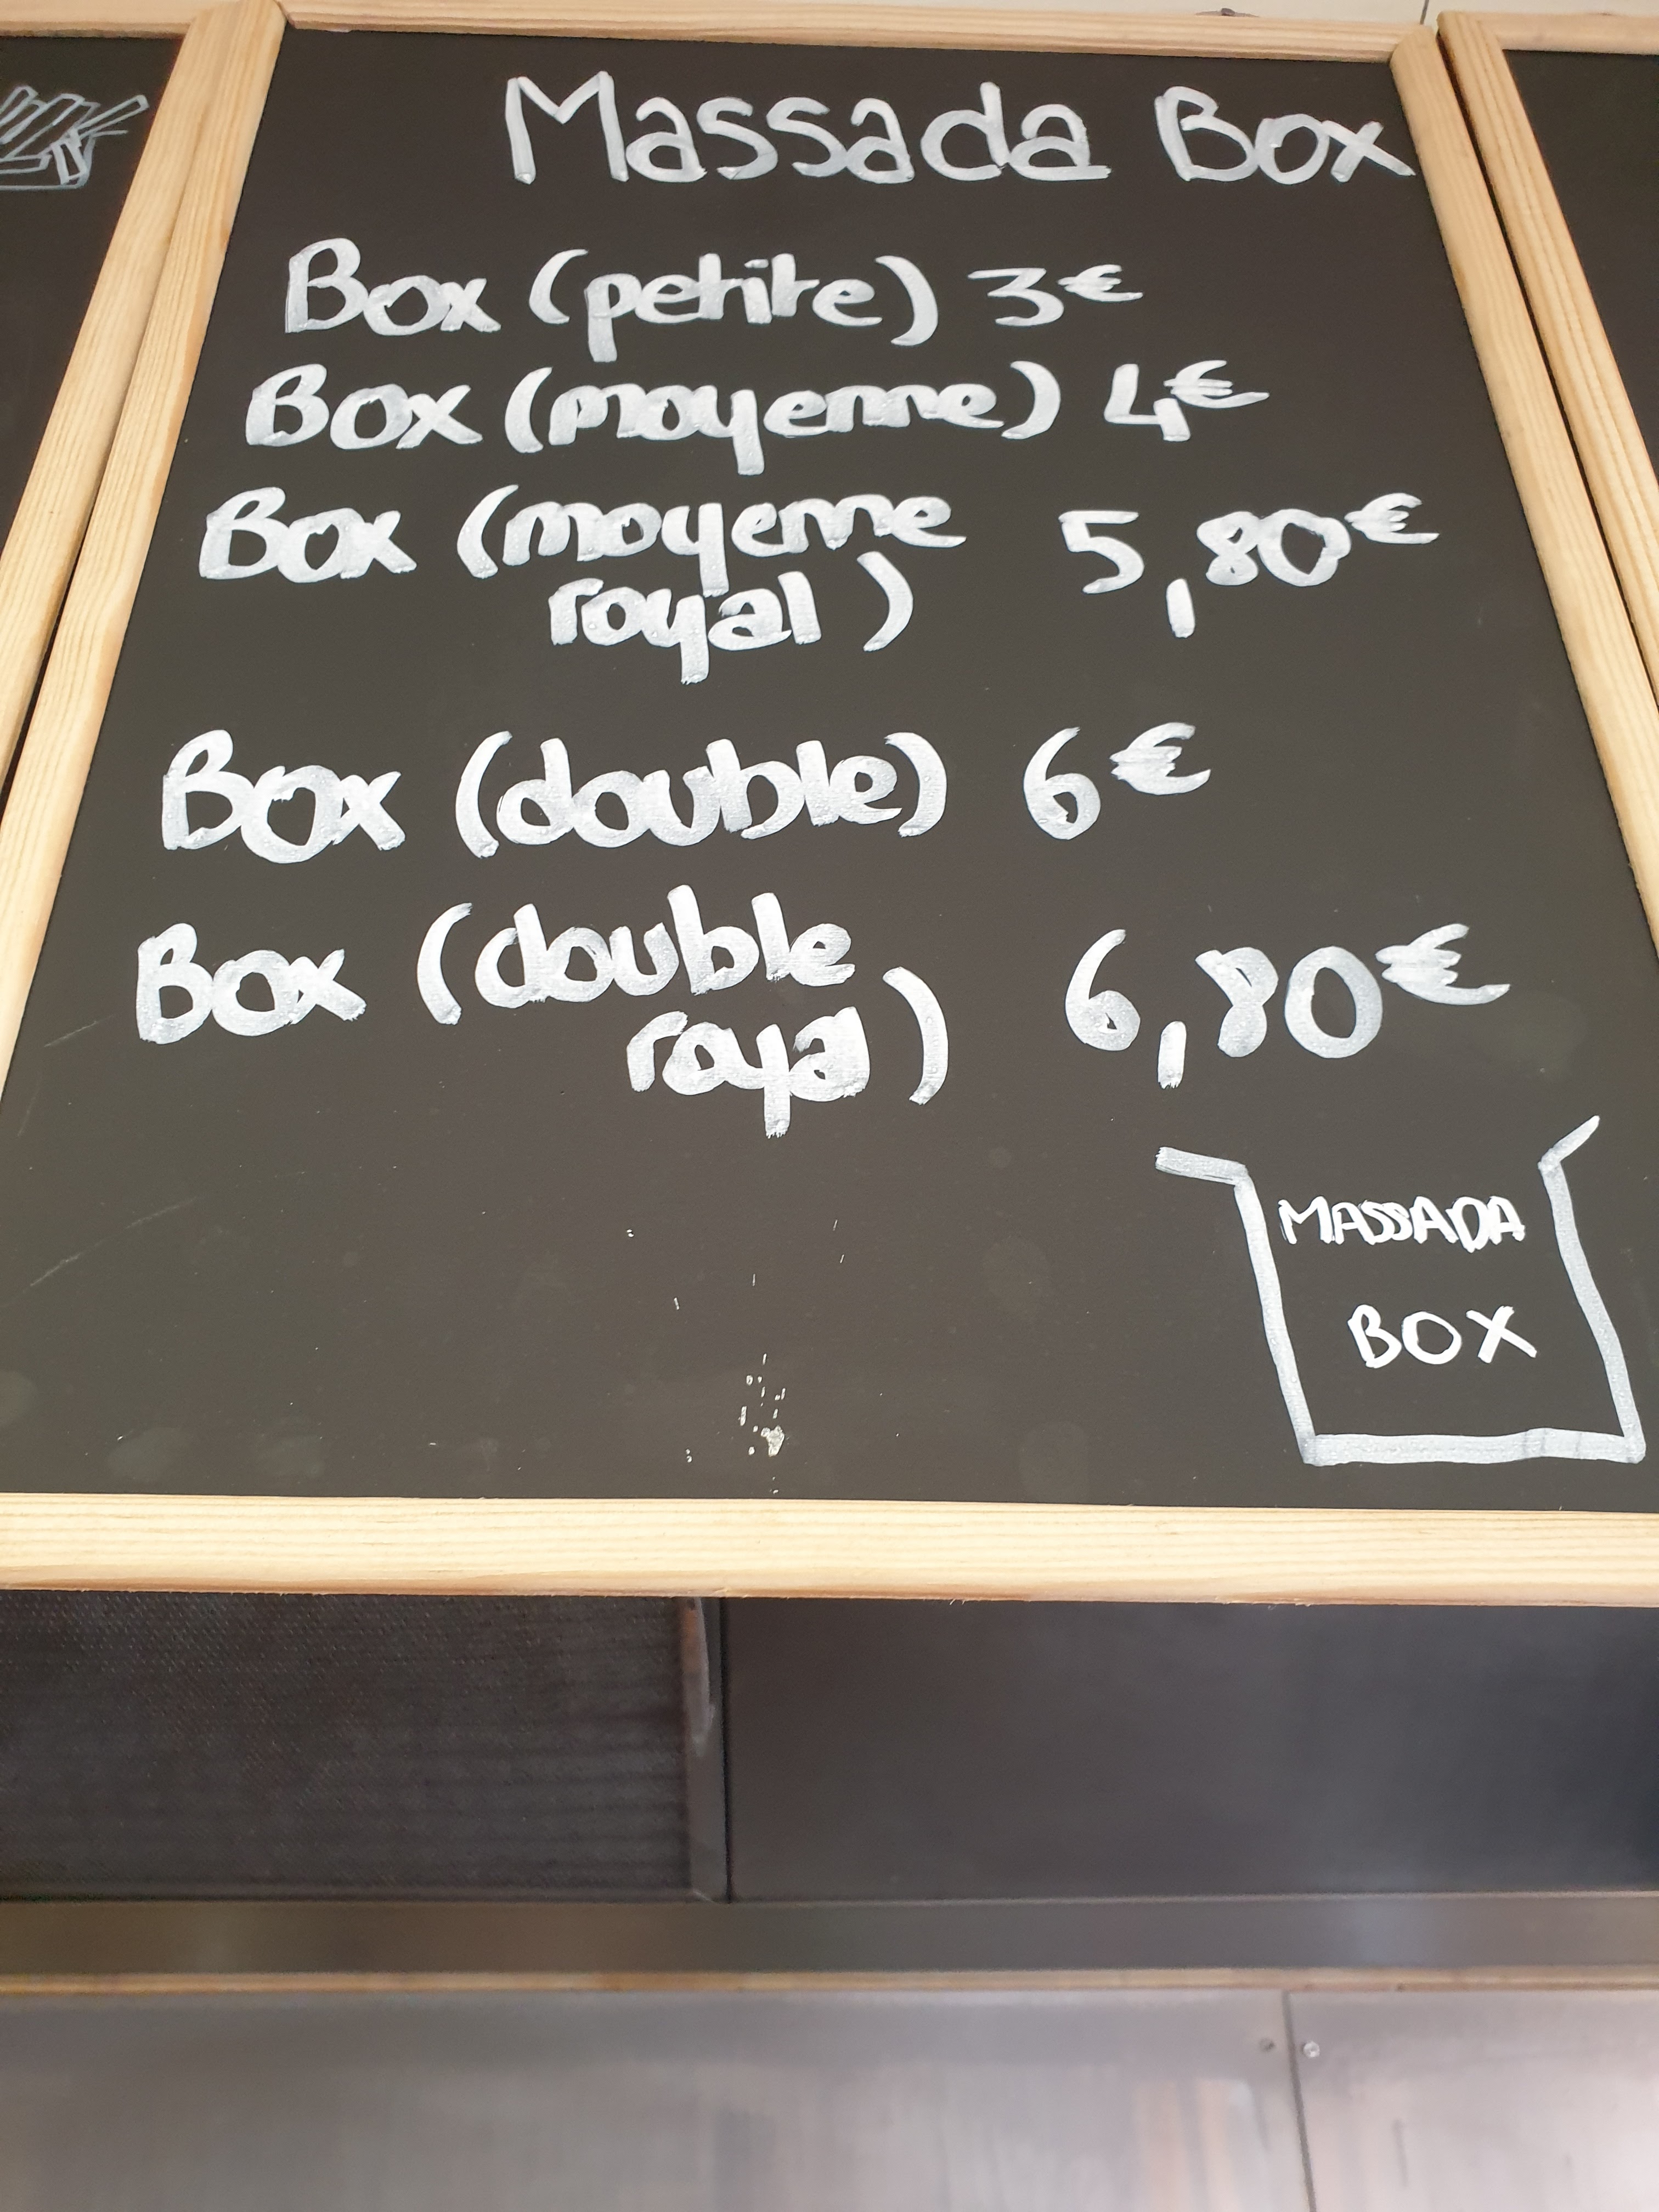 Massada Box
Box (petite) 3€
Box (moyenne) 4€
Box (moyenne 5,80€
royal)
Box (double) 6€
Box (double 6,80€
royal)
MASSADA
BOX